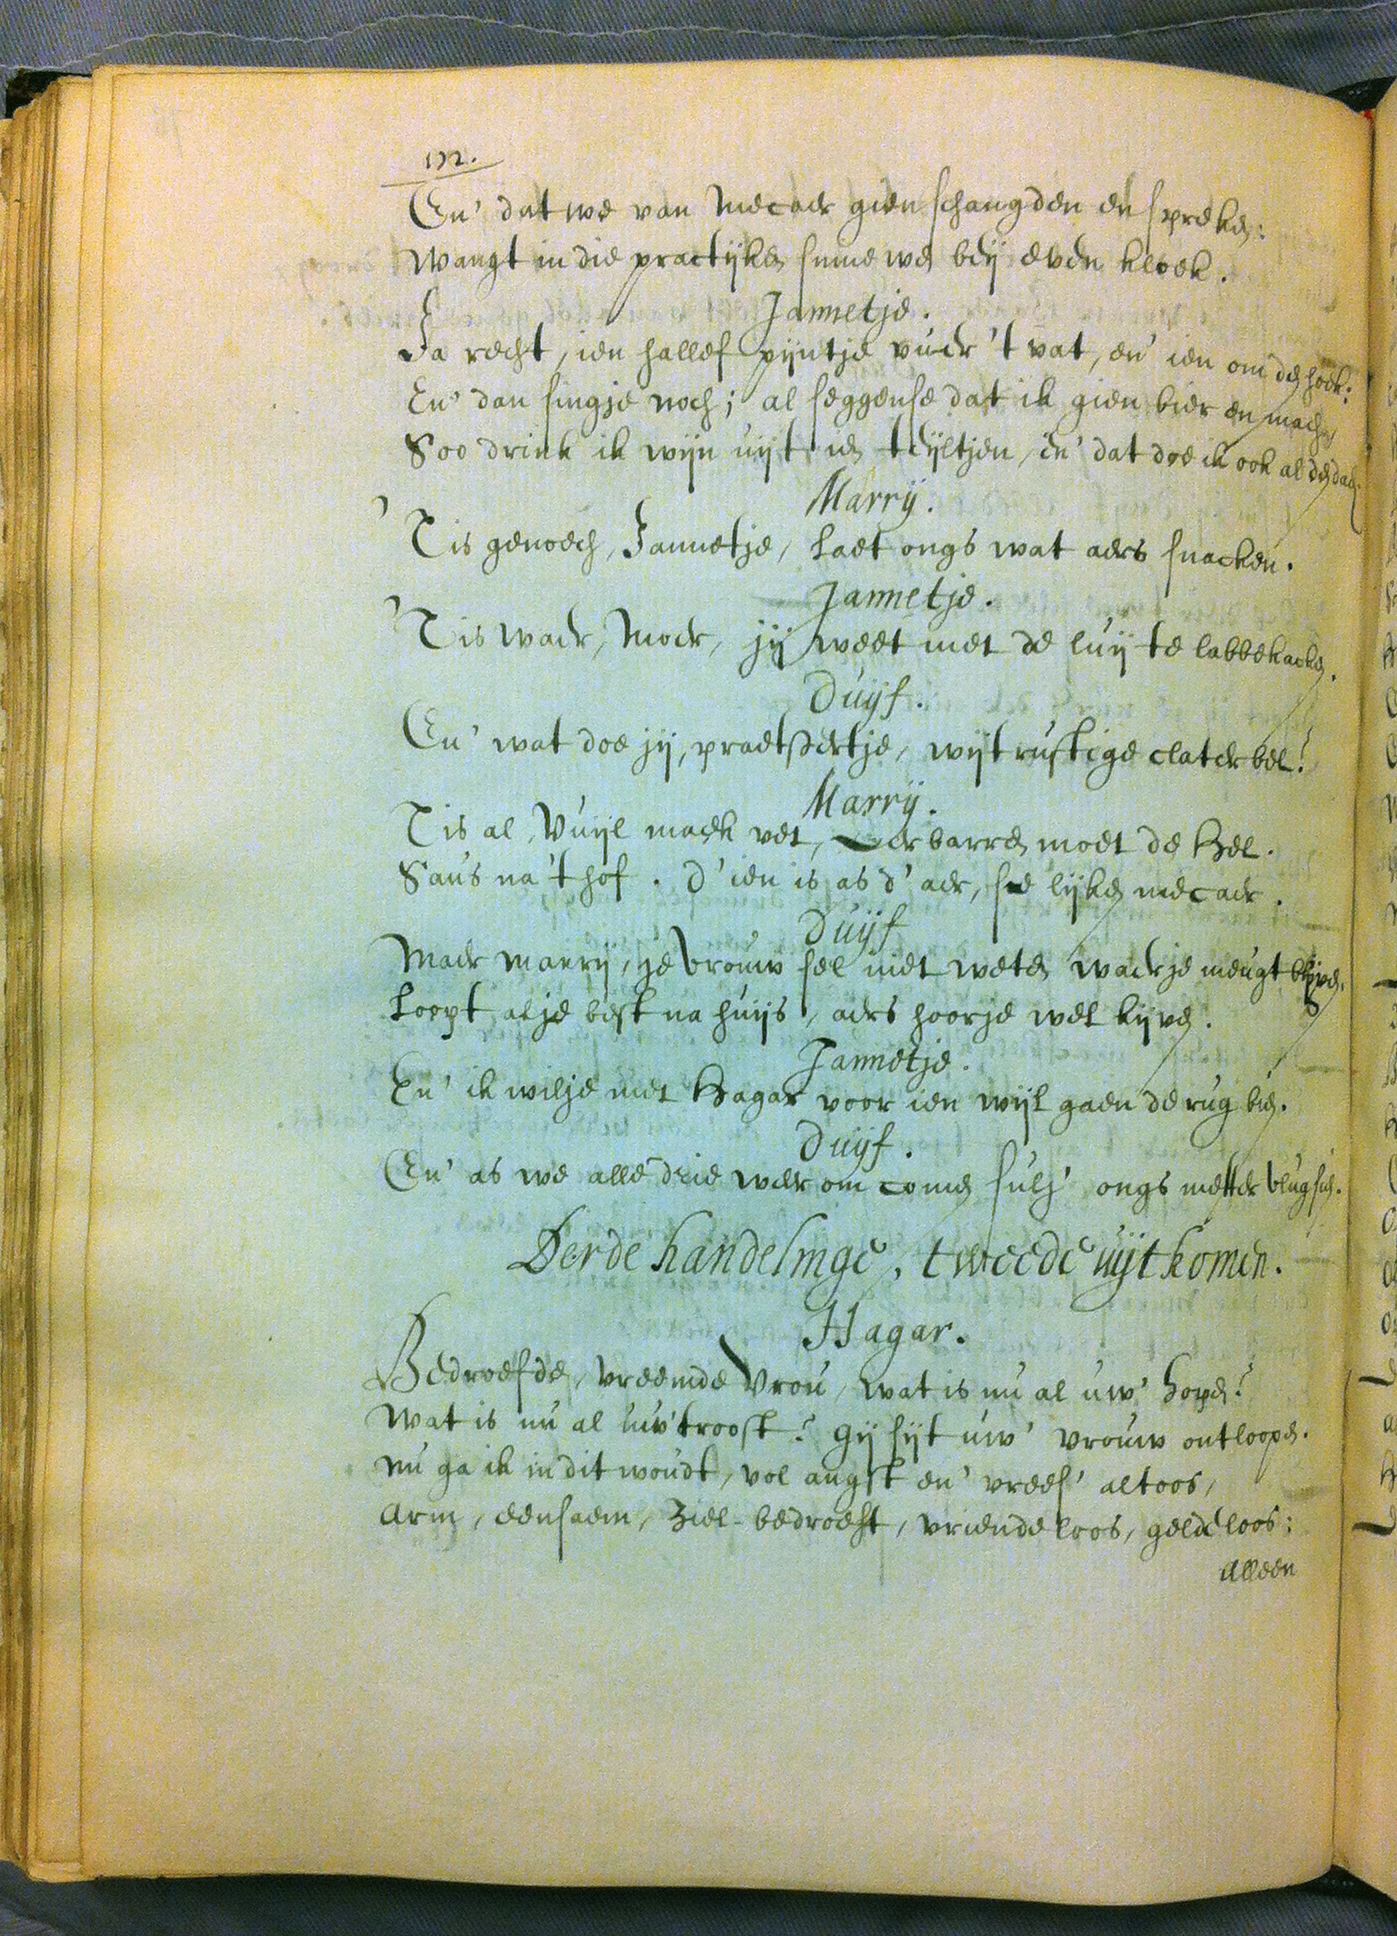 172.
En' dat we van Mecaer gien schangden en spreken:
Wangt in die practijken sinne wen beij even kloek.
Jannetje.
Ja recht, ien hallef pijntje vuer 't vat, en' ien om den hoek:
En' dan singje noch; al seggense dat ik gien bier en mach,
Soo drink ik wijn uijt ien teijltjen, en' dat doe ik ook al den dach.
Marrij.
'Tis genoech, Jannetje, laet ongs wat aers snacken.
Jannetje.
'Tis waer, Moer, jij weet met de luij te labbekacken.
Duijf.
En' wat doe jij, praetstertje, wijtrustige claterbel?
Marrij.
Tis al, Vuijl maek vet, barren moet de Hel.
Saus na 't hof. D' ien is as d' aer, se lijken mecaer.
Duijf
Maer marrij, je Vrouw sel niet weten waerje meugt blijven.
Loopt alje best na huijs, aers hoorje wel kijven.
Jannetje.
En' ik wilje met Hagar voor ien wijl gaen de rug bien.
Duijf.
En' as we alle drie weerom comen sulj' ongs metter vlug sien.
Derde handelinge, tweede uijtkomen.
Hagar.
Bedroefde, vreemde Vrou, wat is nu al uw' hopen?
Wat is nu al uw' troost? Gij sijt uw' vrouw ontloopen.
Nu ga ik in dit woudt, vol angst en' vrees' altoos,
Arm, eensaem, Ziel-bedroeft, vriendeloos, geldeloos:
Alleen